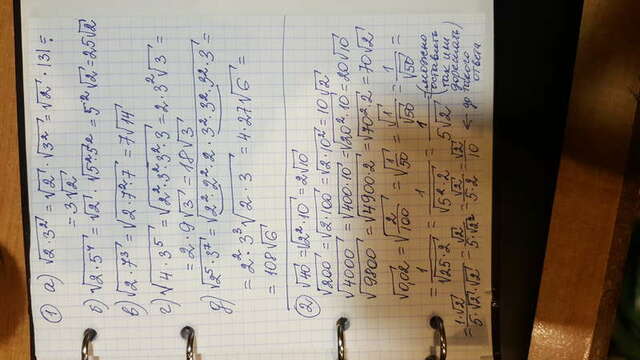 ① а) √(2·3²) = √2 · √(3²) = √2 · |3| =
= 3√2
б) √(2·5⁴) = √2 · √(5²5²) = 5²√2 = 25√2
в) √(2·7³) = √(2·7²·7) = 7√14
г) √(4·3⁵) = √(2²·3²·3²·3) = 2·3²√3 =
= 2·9√3 = 18√3
д) √(2⁵·3⁷) = √(2²·2²·2·3²·3²·3²·3) =
= 2²·3³√(2·3) = 4·27√6 =
= 108√6
② √40 = √(2²·10) = 2√10
√200 = √(2·100) = √(2·10²) = 10√2
√4000 = √(400·10) = √(20²·10) = 20√10
√9800 = √(4900·2) = √(70²·2) = 70√2
√0,02 = √(2/100) = √(1/50) = √1/√50 = 1/√50 =
= 1/√(25·2) = 1/√(5²·2) = 1/(5√2) = (можно
оставить
так или
дорешать)
= (1·√2)/(5·√2·√2) = √2/(5·√2²) = √2/(5·2) = √2/10 ← до такого
ответа